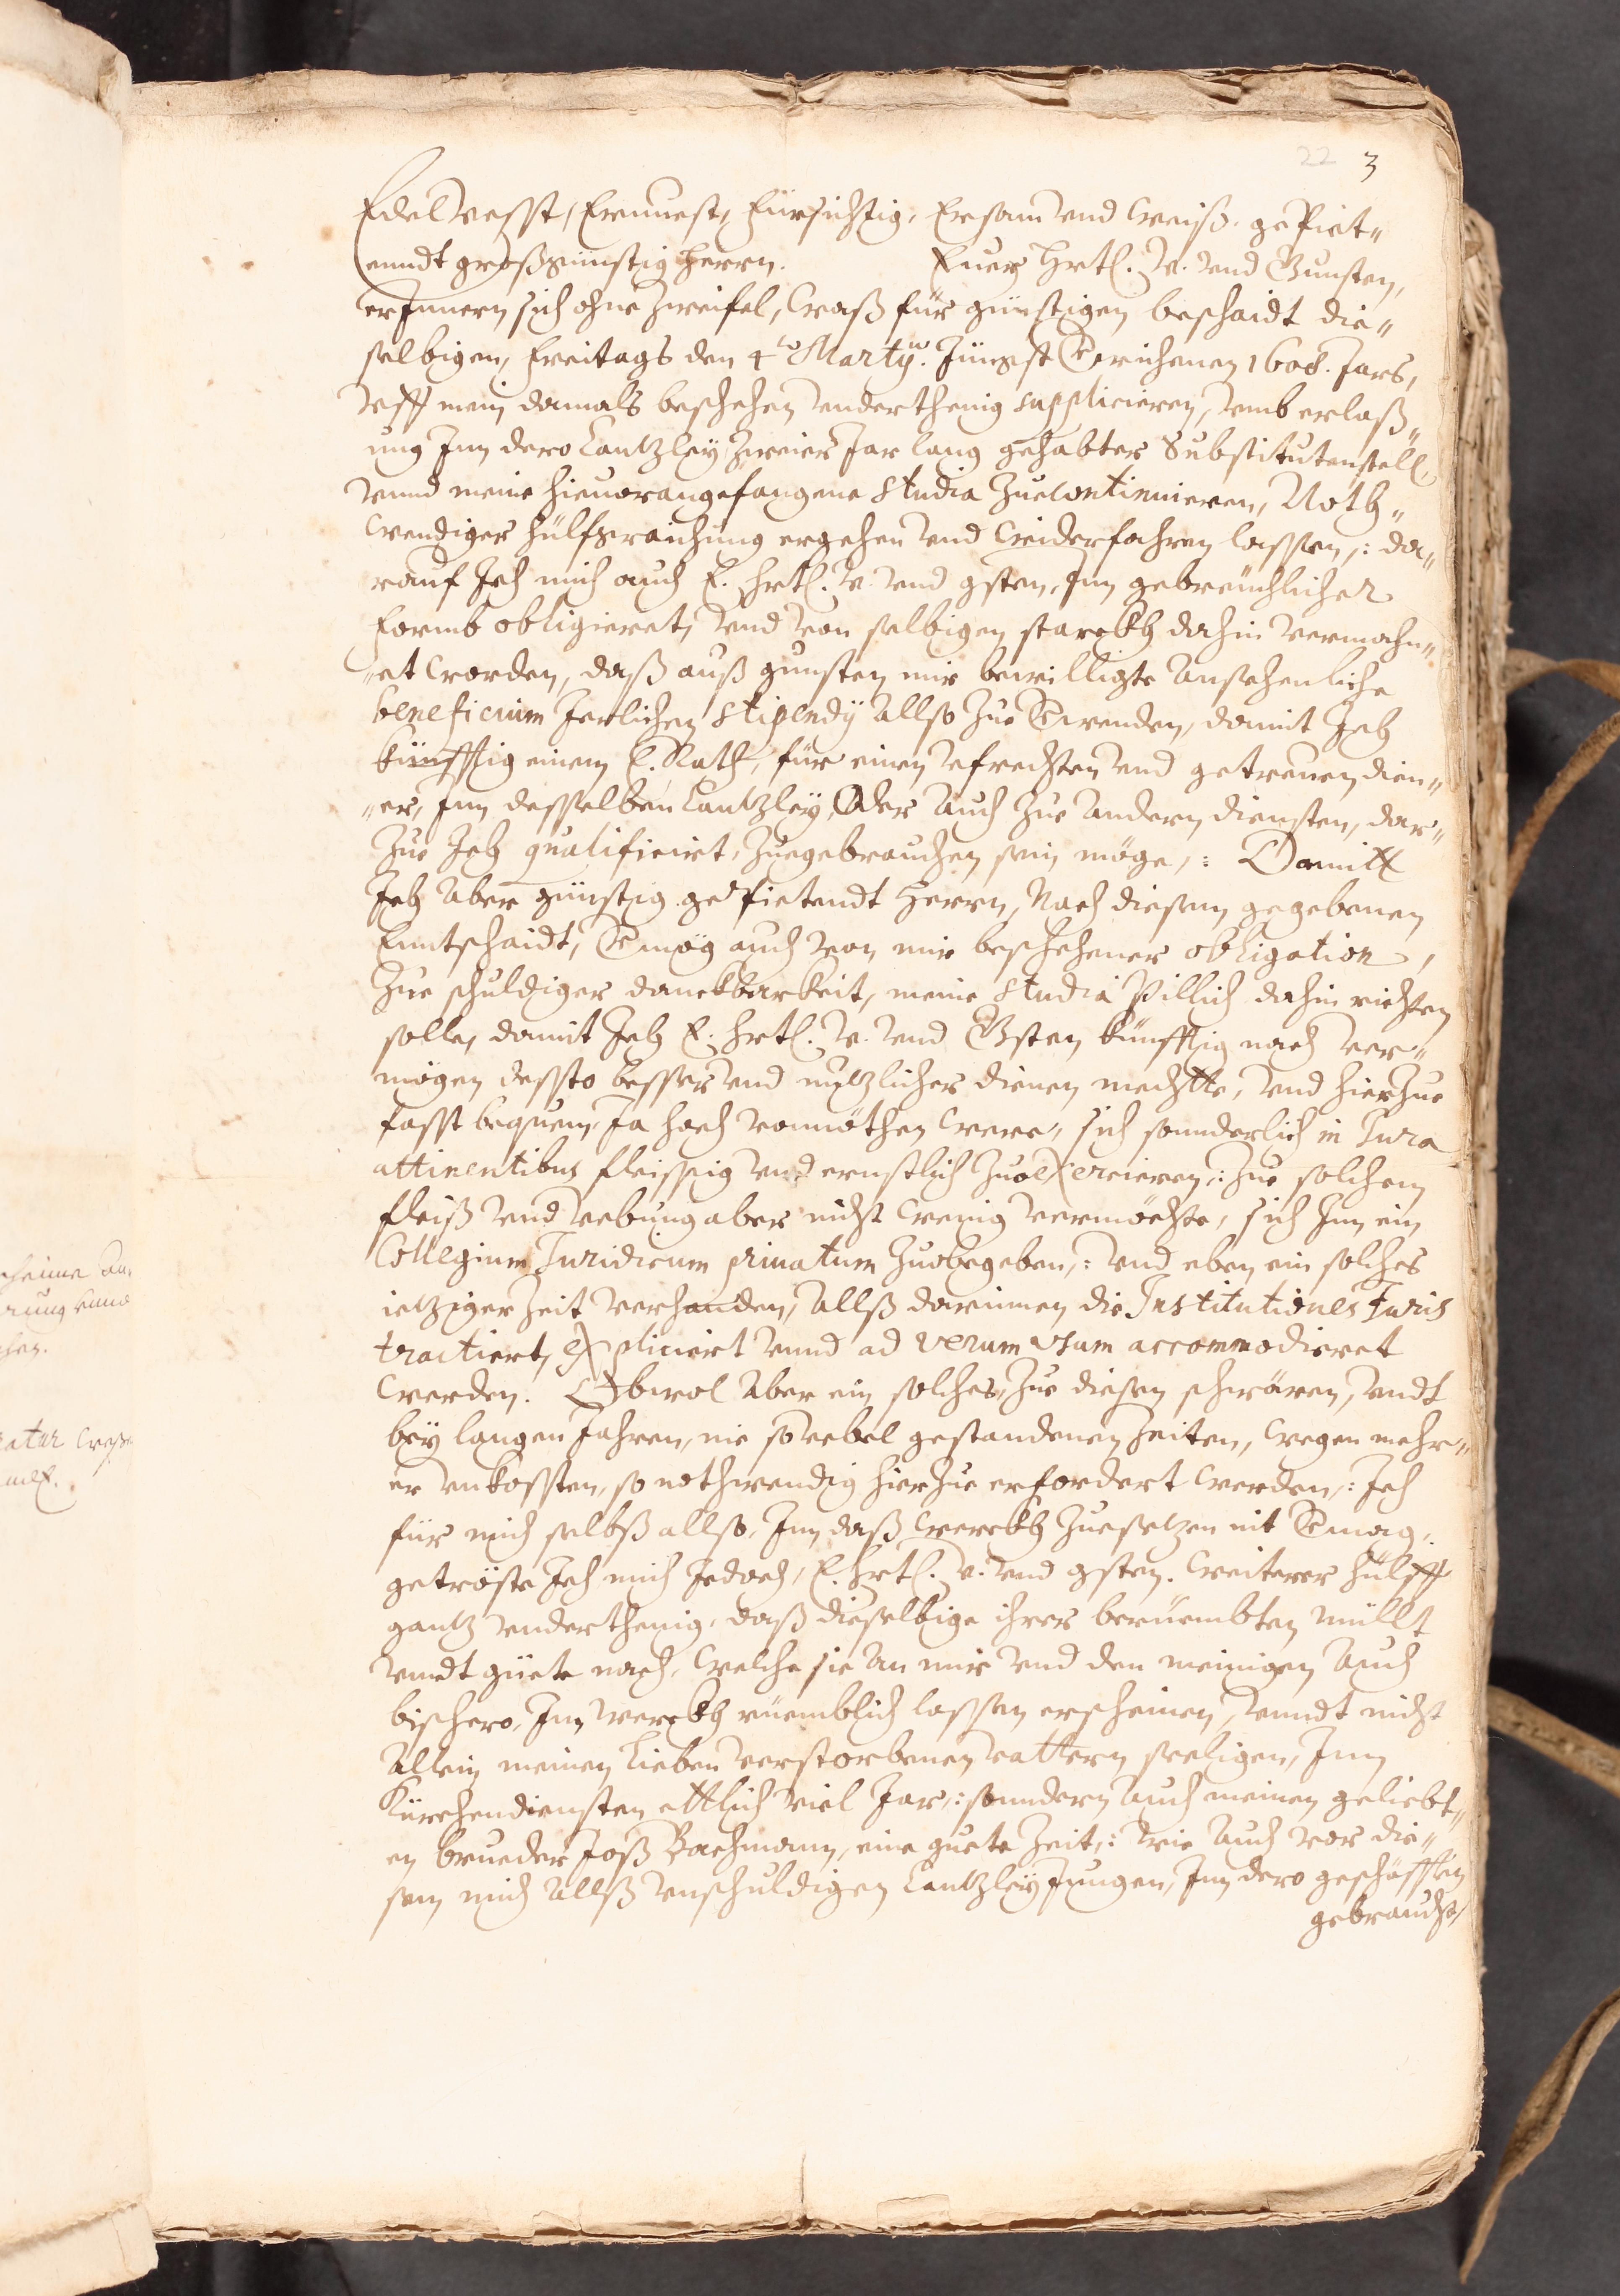 22 3
Edel Vesst, Ernuest, Fürsichtig, Ersam vnd Weiß, gepiet„
enndt großgünstig Herrn. Euer Hrtl. V. vnd Gunsten,
erInnern sich ohne Zweifel, Waß für günstigen beschaidt die„
selbigen, Freitags den 4ᵗᵒ Martÿ. Jüngst verichenen 1608. Jars,
Vff mein domals beschehen vnderthenig supplicieren, vmb erlaß„
ung Inn dero Cantzleÿ Zweier Jar lang gehabter Substitutenstell,
vnnd meine hieuorangefangene studia Zuecontinuieren, Noth„
wendiger hülfsraichung ergehen vnd Widerfahren lassen,: da„
rauf Ich mich auch E. Hrtl. V. vnd gsten, Inn gebreüchlicher
Formb obligieret, vnd von selbigen starckh dahin vermahn„
„et worden, daß auß gunsten mir bewilligte Ansehenliche
beneficium Jerlichen stipendÿ Allso Zue verwenden, damit Ich
künfftig einem E. Rath, für einen vfrechten vnd getrewen dien„
„er, Inn desselben Cantzleÿ, Oder Auch Zue Andern diensten, dar„
Zue Ich qualificirt, Zuegebrauchen sein möge,: Damitt
Ich Aber günstig gepietendt Herrn, Nach diesem gegebenen
Enntschaidt, vermög auch von mir beschehener obligation,
Zue schuldiger danckbarkeit, meine studia pillich dahin richten
solle, damit Ich E. Hrtl. V. vnd Gsten künfftig nach ver„
mögen dessto besser vnd nutzlicher dienen mechtte, vnd hierzue
fasst bequem, Ja hoch vonnöthen were, sich sonnderlich in Jura
attinentibus fleissig vnd ernstlich Zue exercieren,: Zue solchem
fleiß vnd vebung aber nicht wenig vermöchte, sich Inn ein
Collegium Juridicum priuatum Zuobegeben,: vnd eben ein solches
ietziger Zeit verhanden, Allß darinnen die Institutiones Juris
tractiert, expliciert vnnd ad verum vsum accommodieret
werden. Obwol Aber ein solches, Zue diesen schwären, vndt
beÿ langen Jahren, nie so vebel gestandenen Zeiten, wegen mehr„
er vnkossten, so nothwendig hierzue erfordert werden,: Ich
für mich selbß allso, Inn daß werckh Zuesetzen nit vermag,
getröste Ich mich Jedoch, E. Hrtl. V. vnd gsten. weiterer hülff
gantz vnderthenig, daß dieselbige ihrer beruembten müllt
vnndt güete nach, welche sie An mir vnd den meinigen Auch
bischero, Inn werckh rüemblich lassen erscheinen, vnndt nicht
Allein meinen Lieben verstorbenen vattern seeligen, Inn
Kürchendiensten ettlich viel Jar,: sonndern Auch meinen geliebt„
en brueder Joß Bachmann, eine guete Zeit,: wie Auch vor die„
sem mich Allß vnschuldigen Cantzleÿ Jungen, Inn dero geschäfften
gebraucht,